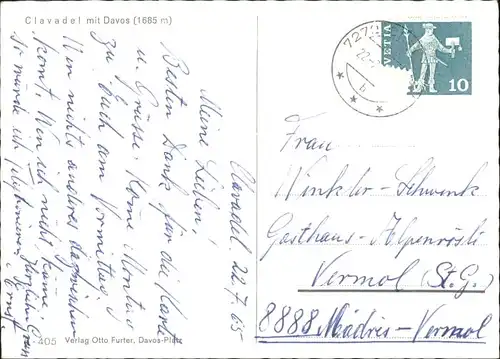 Clavadel mit Davos (1685 m)
Clavadel 22.7.65
Meine Lieben!
Besten Dank für die Karte
u. Grüsse. Komme Montag
zu Euch am Vormittag.
Wen nichts anderes dazwischen
komt. Wen ich nicht käme,
So würde ich telefonieren.
Herzlichen Gruss
Ernst.
405 Verlag Otto Furter, Davos-Platz
7272
22.
b
HELVETIA
10
Frau
Winkler-Schwenk
Gasthaus-Alpenrösli
Vermol (St.G.)
8888 Mädris-Vermol